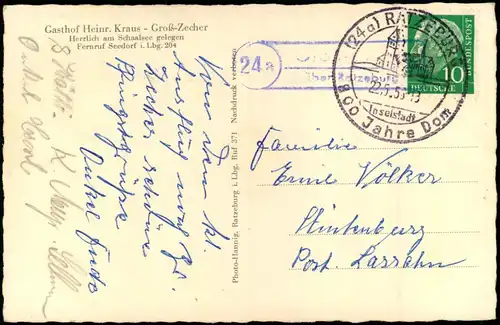 Gasthof Heinr. Kraus - Groß-Zecher
Herrlich am Schaalsee gelegen
Fernruf Seedorf i. Lbg. 204
Von dem kl.
Ausflug nach Gr.
Zecher schöne
Pfingstgrüße
Onkel
Photo-Hannig, Ratzeburg i. Lbg. Ruf 371 Nachdruck verboten
24a
über Ratzeburg
(24a) RATZEBURG
Inselstadt
800 Jahre Dom
DEUTSCHE BUNDESPOST
10
Familie
Emil Völker
Stintenburg
Post. Lassahn